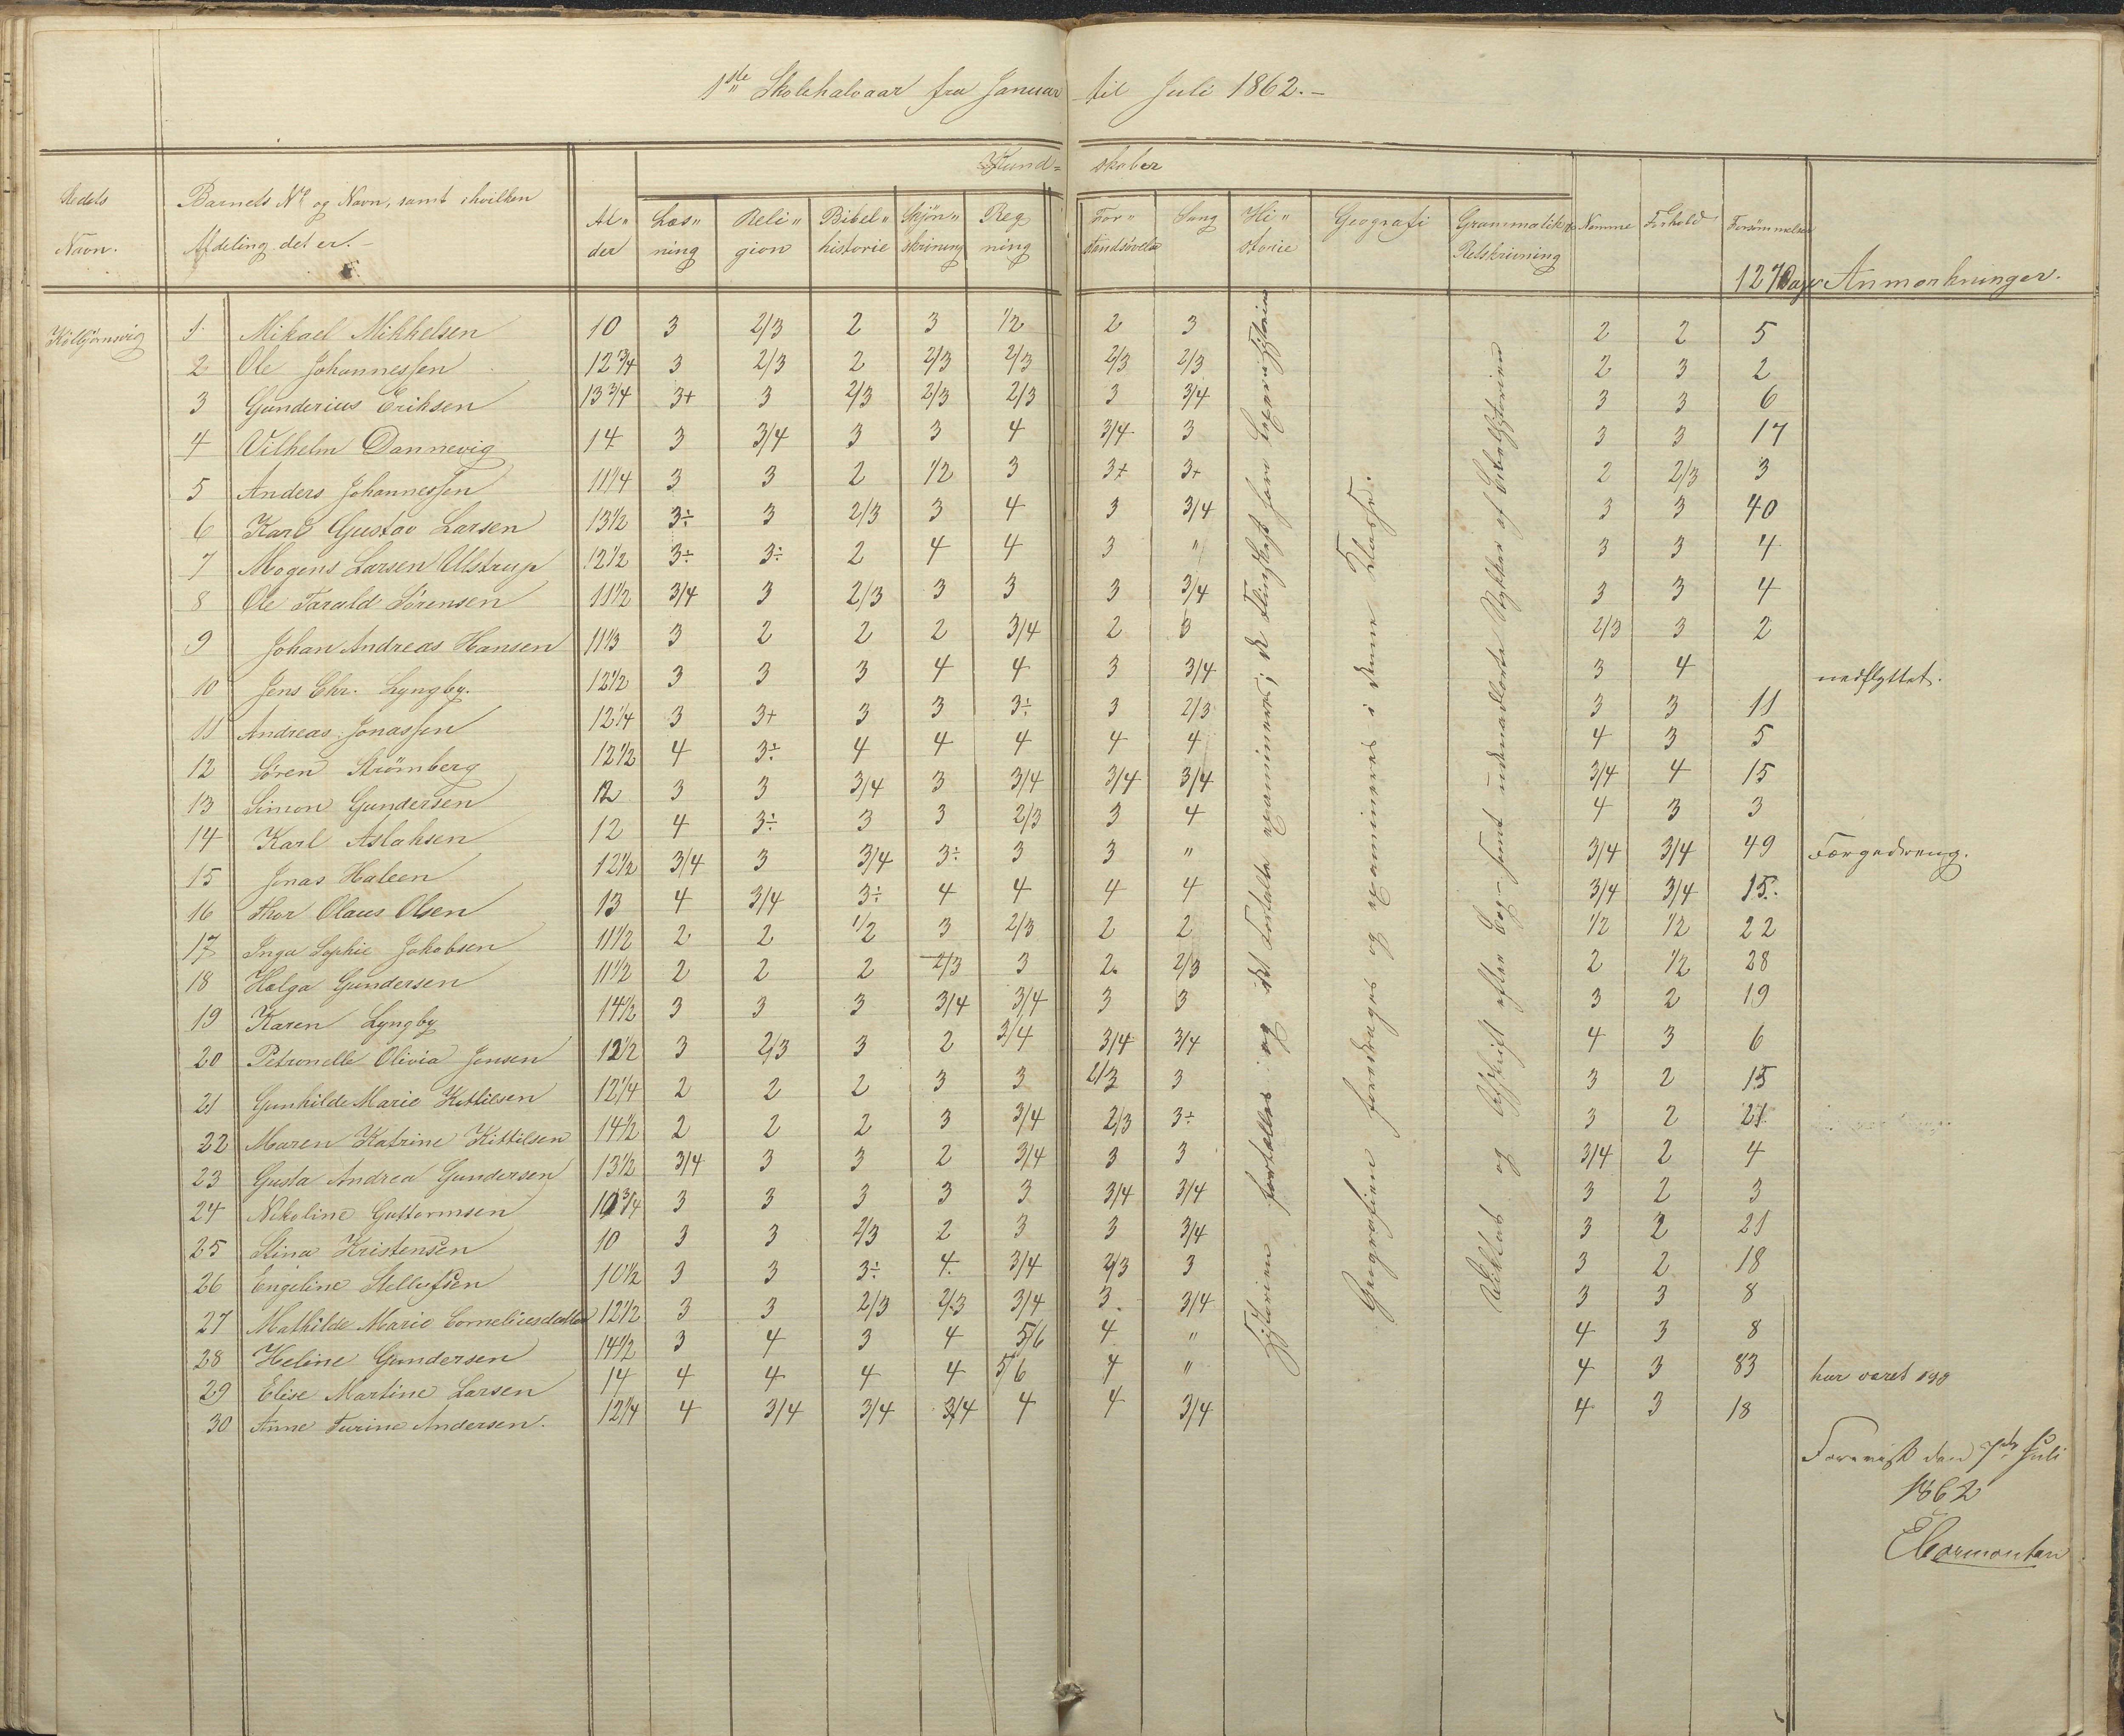 1ste Skolehalvaar fra Januar til Juli 1862.-
Kund= skaber
Stedets Navn.
Barnets No og Navn, samt i hvilken Afdeling det er.-
Al" der
Læs" ning
Reli" gion
Bibel" historie
Skjön" skrivning
Reg ning
For" standsövelse
Sang
Hi" storie
Geografi
Grammatik og Retskrivning
Nemme
Forhold
Forsömmelser
127 Dage
Anmærkninger.
Kolbjörnsvig
1 Mikael Mikkelsen 10 3 2/3 2 3 1/2 2 3 2 2 5
2 Ole Johannessen 12 3/4 3 2/3 2 2/3 2/3 2/3 2/3 2 3 2
3 Gunderius Eriksen 13 3/4 3+ 3 2/3 2/3 2/3 3 3/4 3 3 6
4 Vilhelm Dannevig 14 3 3/4 3 3 4 3/4 3 3 3 17
5 Anders Johannessen 11 1/4 3 3 2 1/2 3 3+ 3+ 2 2/3 3
6 Karl Gustav Larsen 13 1/2 3÷ 3 2/3 3 4 3 3/4 3 3 40
7 Mogens Larsen Ulstrup 12 1/2 3÷ 3÷ 2 4 4 3 " 3 3 4
8 Ole Tarald Sörensen 11 1/2 3/4 3 2/3 3 3 3 3/4 3 3 4
9 Johan Andreas Hansen 11 1/3 3 2 2 2 3/4 2 3 2/3 3 2
10 Jens Chr. Lyngby. 12 1/2 3 3 3 4 4 3 3/4 3 4 nedflyttet.
11 Andreas Jonassen 12 1/4 3 3+ 3 3 3÷ 3 2/3 3 3 11
12 Sören Strömberg 12 1/2 4 3÷ 4 4 4 4 4 4 3 5
13 Simon Gundersen 12 3 3 3/4 3 3/4 3/4 3/4 3/4 4 15
14 Karl Aslaksen 12 4 3÷ 3 3 2/3 3 4 4 3 3
15 Jonas Haleen 12 1/2 3/4 3 3/4 3÷ 3 3 " 3/4 3/4 49 Færgedreng.
16 Thor Olaus Olsen 13 4 3/4 3÷ 4 4 4 4 3/4 3/4 15.
17 Inga Sophie Jakobsen 11 1/2 2 2 1/2 3 2/3 2 2 1/2 1/2 22
18 Helga Gundersen 11 1/2 2 2 2 2/3 3 2. 2/3 2 1/2 28
19 Karen Lyngby 14 1/2 3 3 3 3/4 3/4 3 3 3 2 19
20 Petronelle Olivia Jensen 12 1/2 3 2/3 3 2 3/4 3/4 3/4 4 3 6
21 Gunhilde Marie Kittilsen 12 1/4 2 2 2 3 3 2/3 3 3 2 15
22 Maren Katrine Kittilsen 14 1/2 2 2 2 3 3/4 2/3 3÷ 3 2 21
23 Gusta Andrea Gundersen 13 1/2 3/4 3 3 2 3/4 3 3 3/4 2 4
24 Nikoline Guttormsen 10 3/4 3 3 3 3 3 3/4 3/4 3 2 3
25 Stina Kristensen 10 3 3 2/3 2 3 3 3/4 3 2 21
26 Engeline Stellefsen 10 1/2 3 3 3÷ 4. 3/4 2/3 3 3 2 18
27 Mathilde Marie Corneliusdatter 12 1/2 3 3 2/3 2/3 3/4 3. 3/4 3 3 8
28 Heline Gundersen 14 1/2 3 4 3 4 5/6 4 " 4 3 8
29 Elise Martine Larsen 14 4 4 4 4 5/6 4 " 4 3 83 har været syg
30 Anne Turine Andersen. 12 1/4 4 3/4 3/4 3/4 4 4 3/4 4 3 18
Historien fortælles og det fortalte examineres; de flinkeste have Læxer i Historien
Geografien foredrages og examineres i denne Klasse.
Diktat og Afskrift efter Bog samt udenadlærte Stykker af Bibelhistorien
Forevist den 7de Juli
1862